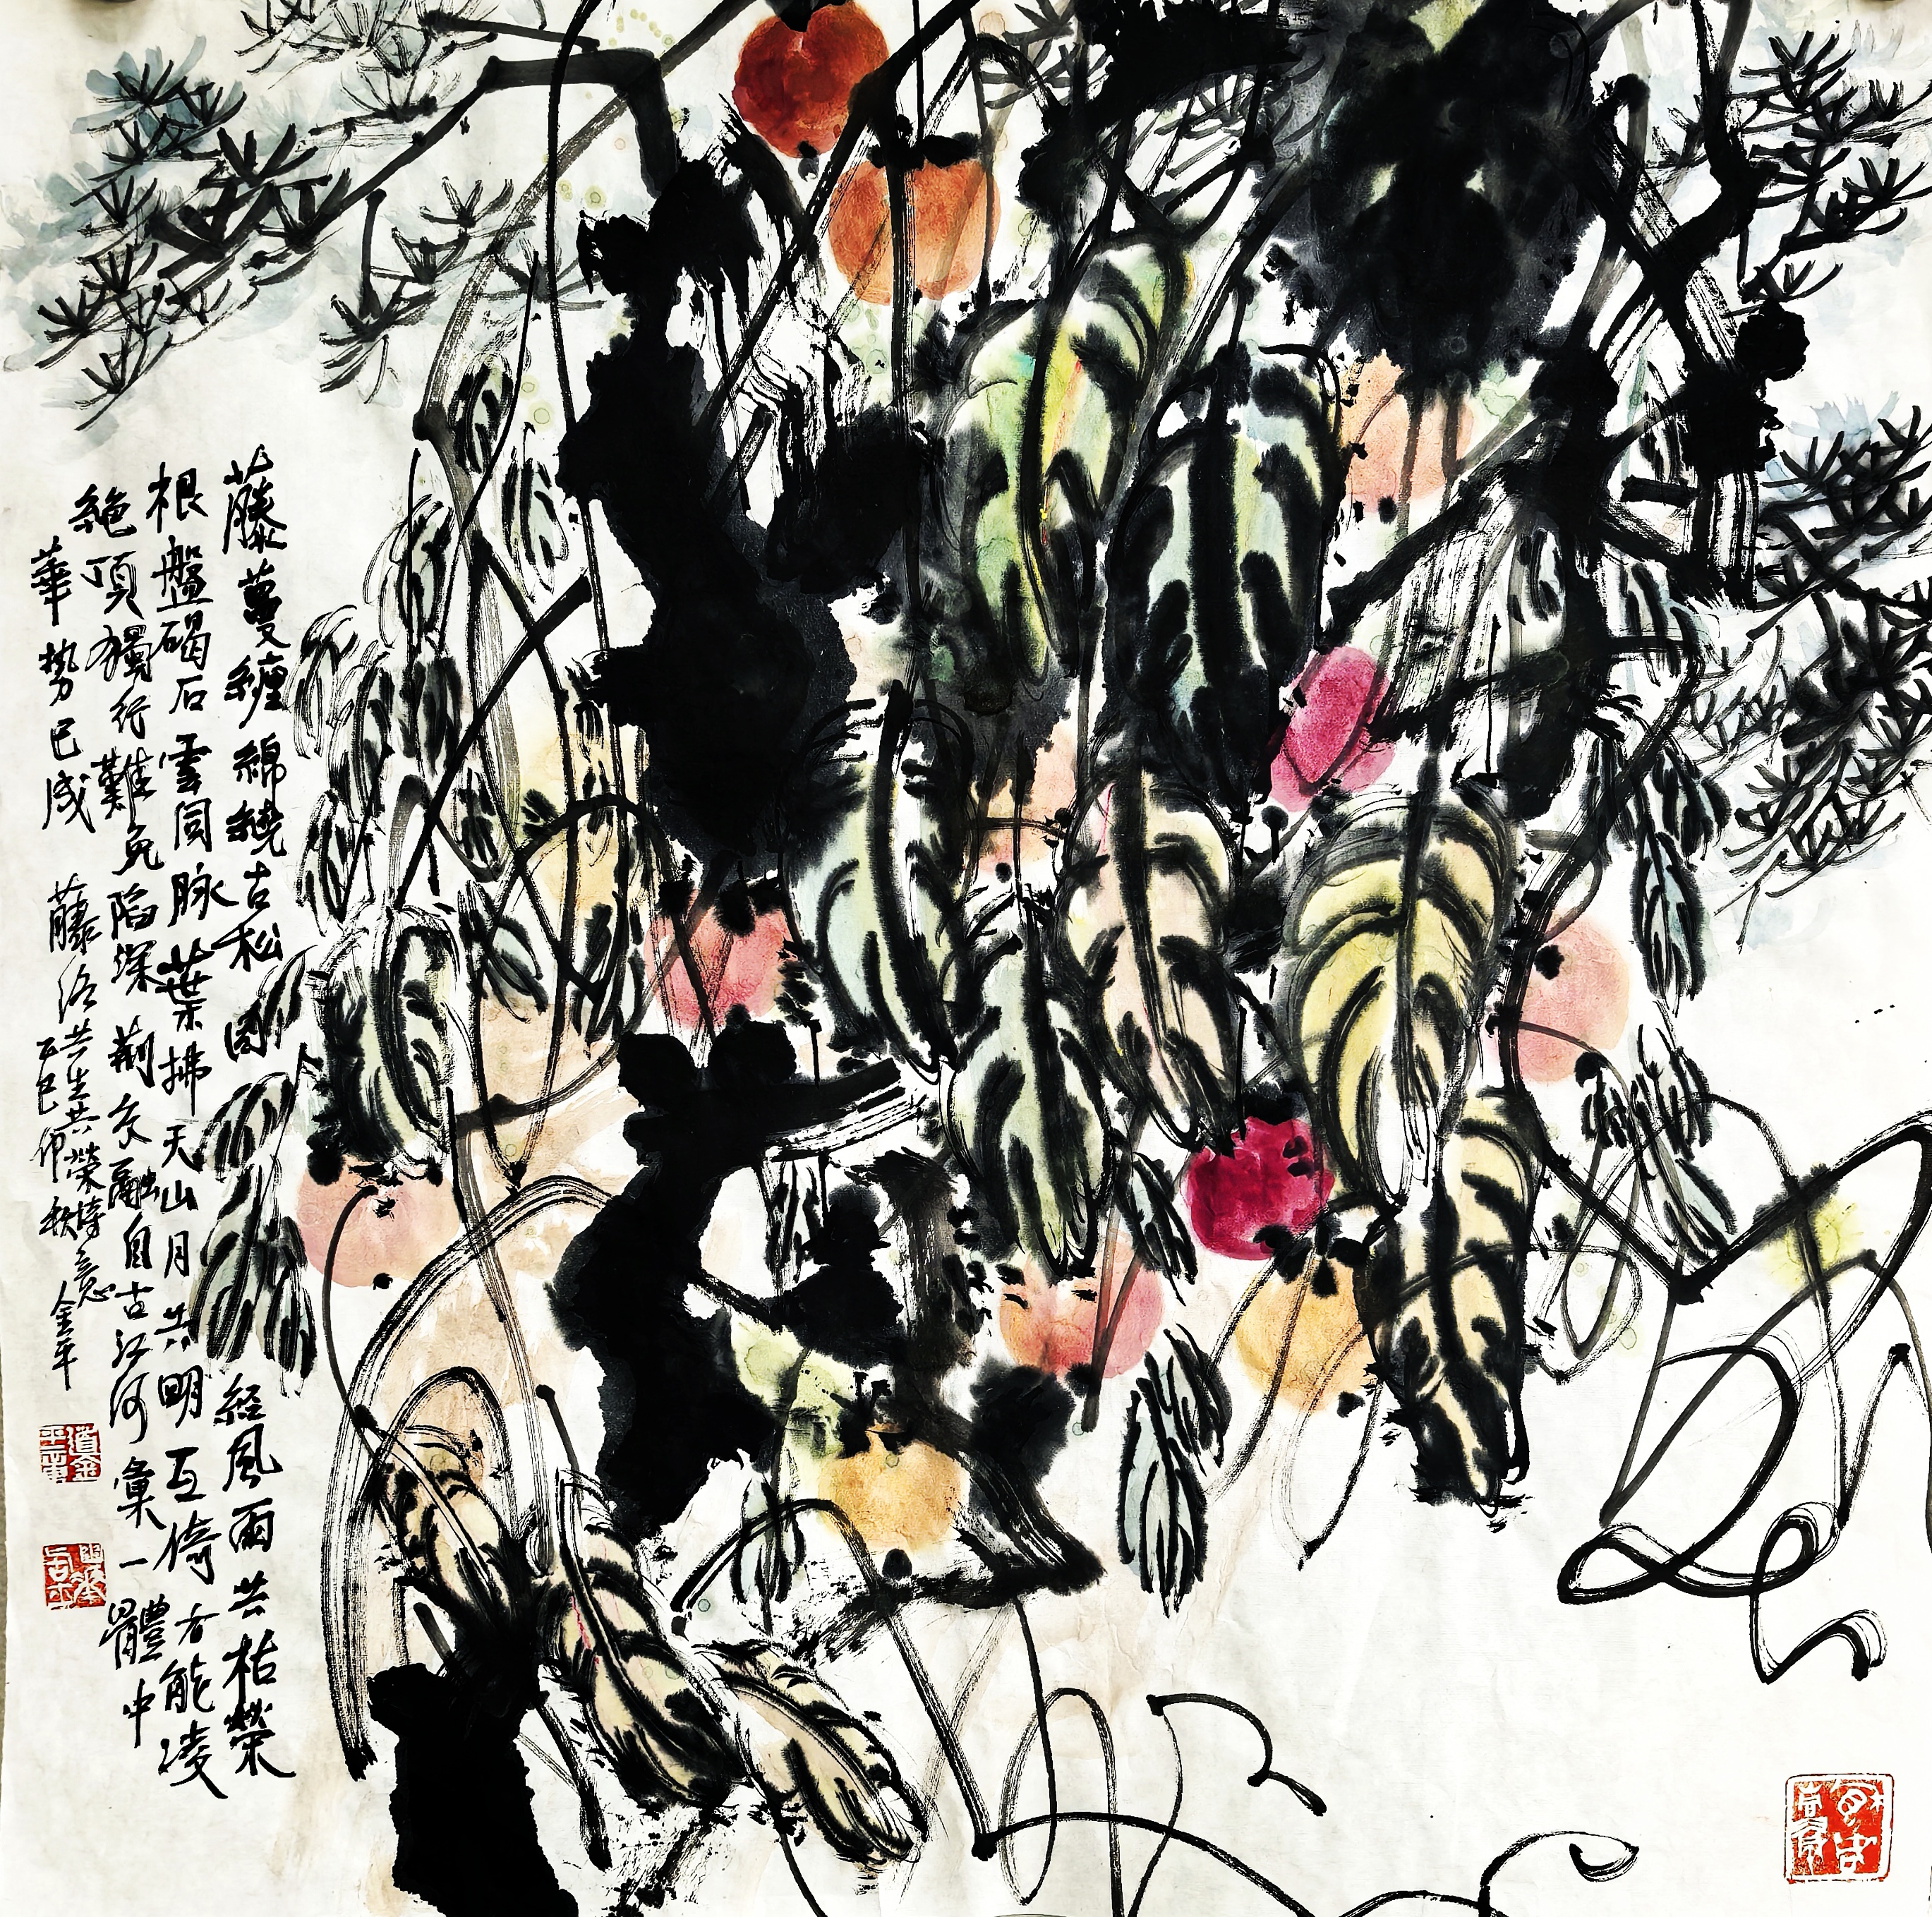 藤蔓纏綿繞古松 圖 經風雨共枯榮
根盤碣石雲同脉葉拂天山月共明互倚方能凌
絶頂獨行難免陷深荆交融自古江河彙一體中
華勢已成 藤洛共生共榮詩意
乙巳仲秋 金平